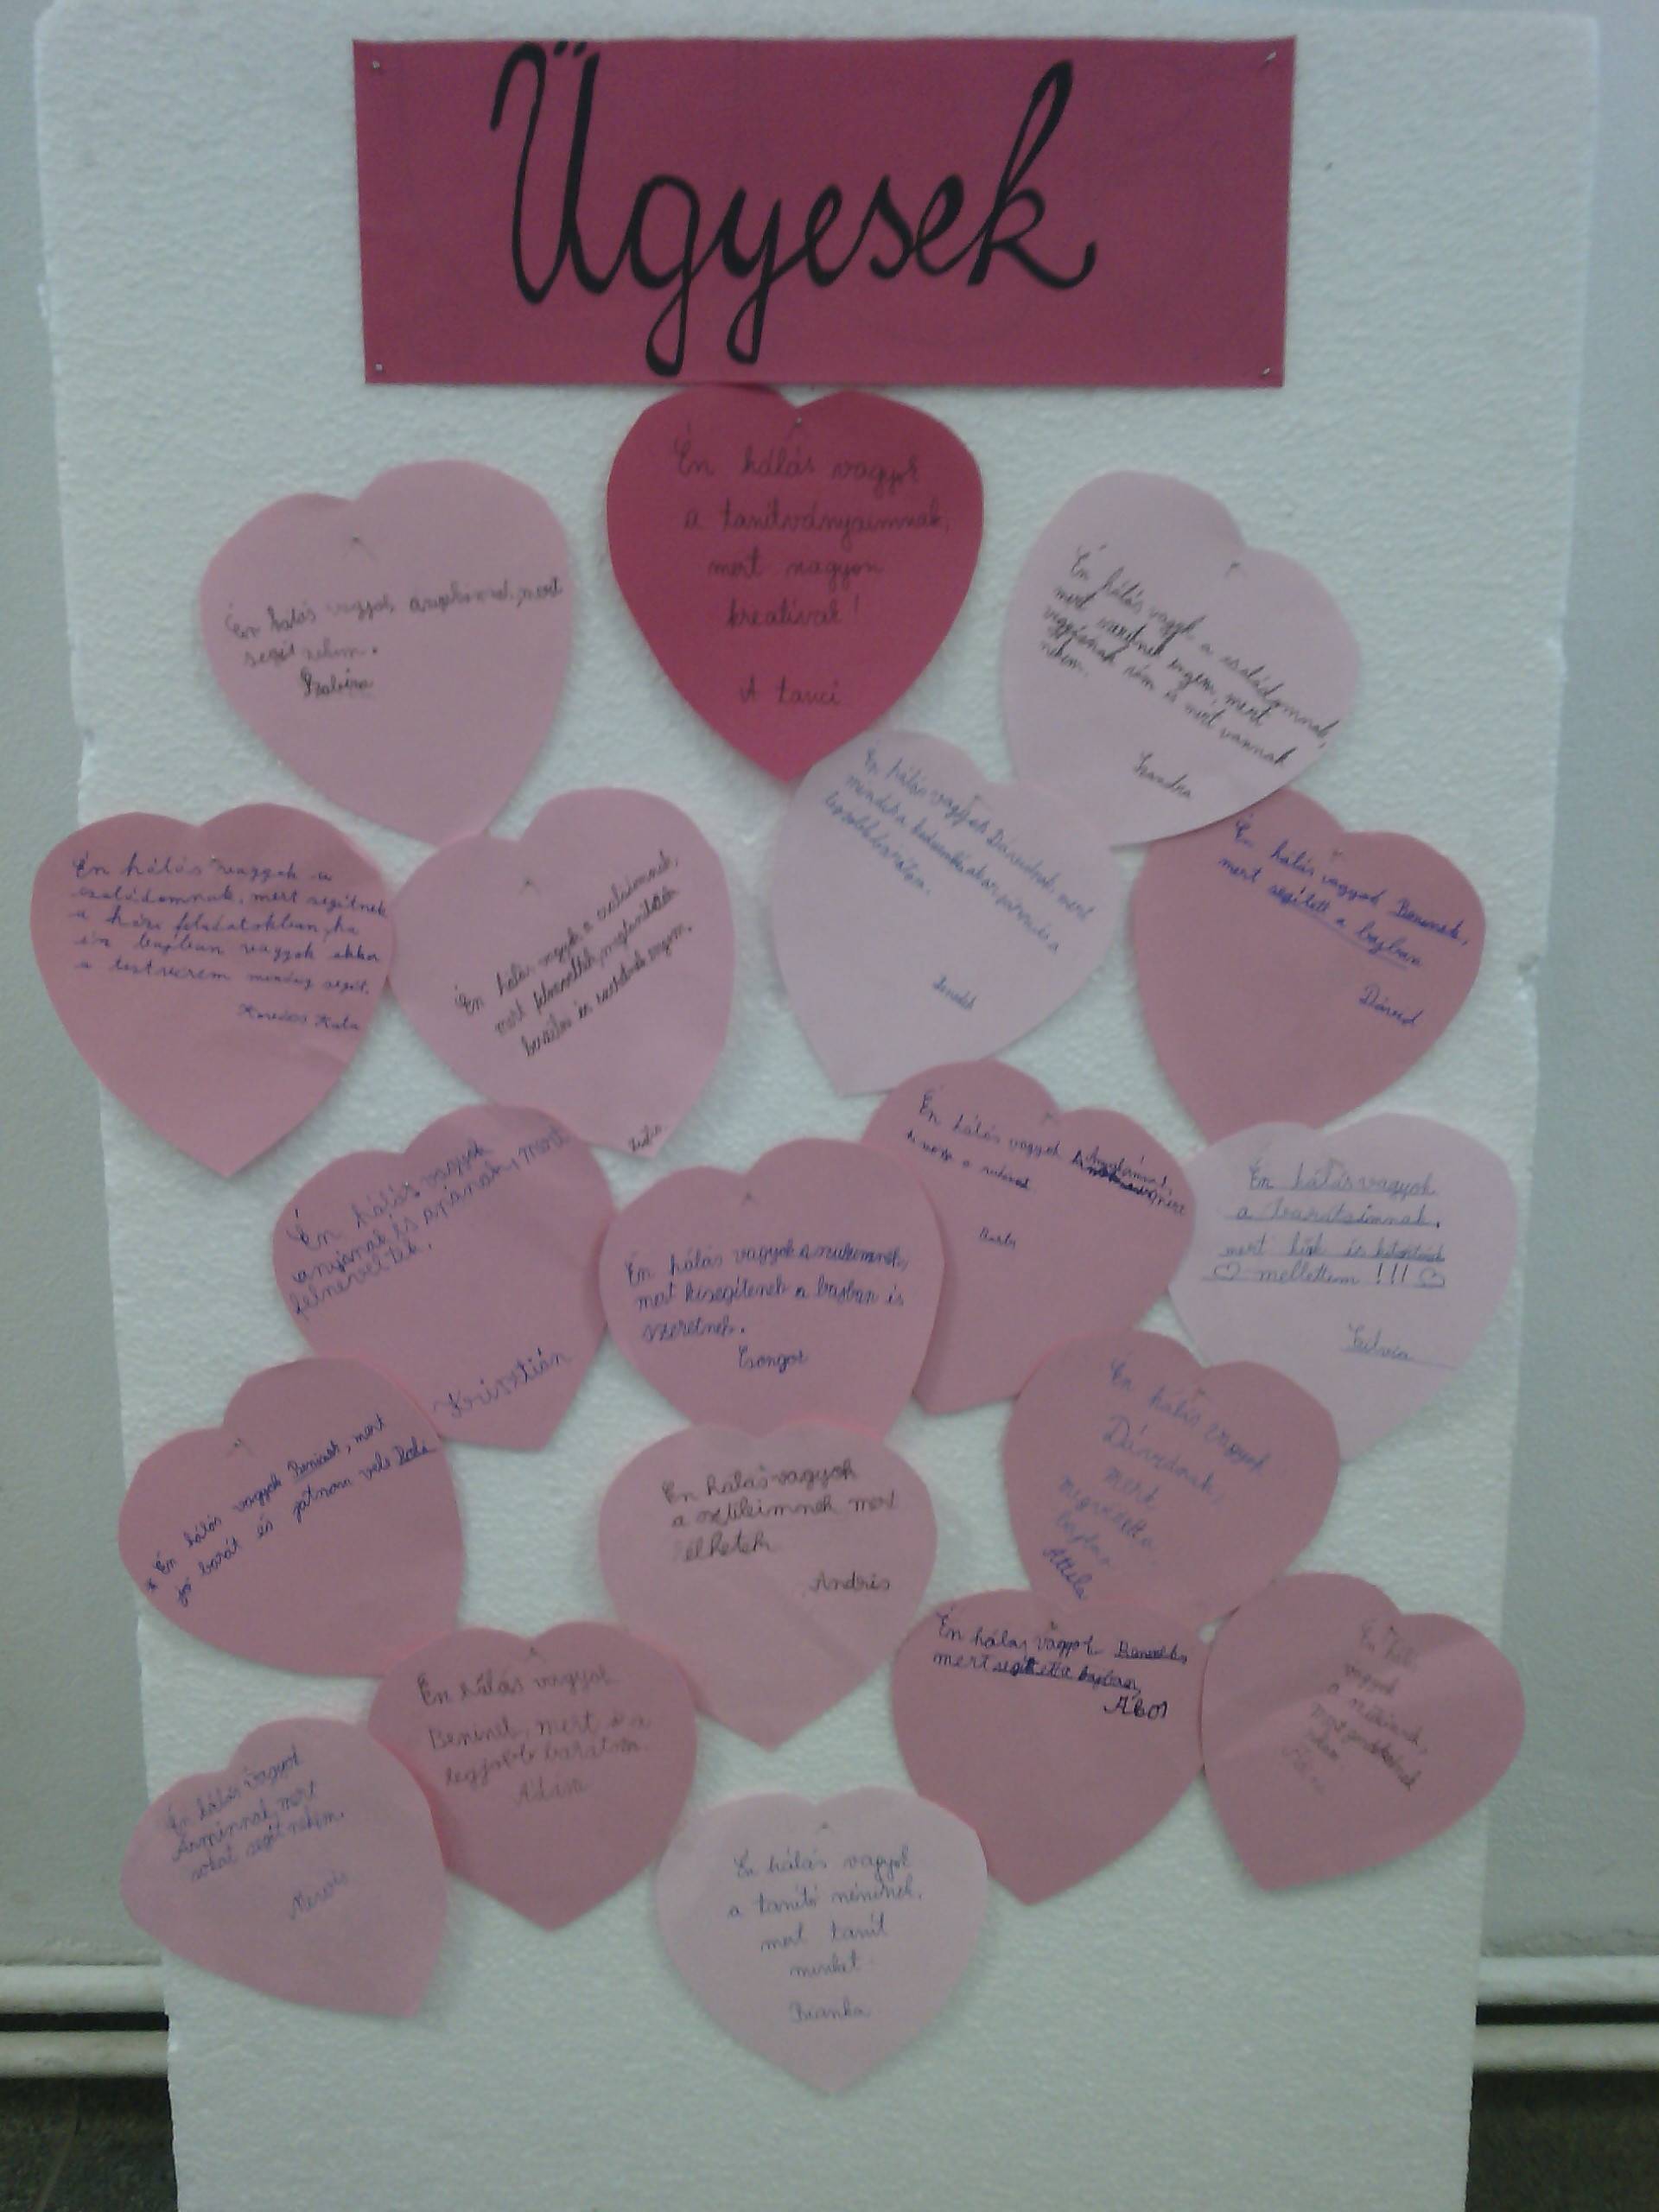 Ügyesek
Én hálás vagyok
a tanítványaimnak,
mert nagyon
kreatívak!
A tanci
Én hálás vagyok anyukámnak, mert
segít nekem.
Szabina
Én hálás vagyok a családomnak,
mert szeretnek engem, mert
vigyáznak rám és mert vannak
nekem.
Szandra
Én hálás vagyok a
családomnak, mert segítnek
a házi feladatokban, ha
én bajban vagyok akkor
a testvérem mindig segít.
Kata
Én hálás vagyok a családomnak,
mert felneveltek, megtanítottak
beszélni és szeretnek engem.
Én hálás vagyok Dávidnak, mert
mindig a kedvemben
legjobb barátom.
Én hálás vagyok Beninek,
mert segített a bajban
Dávid
Én hálás vagyok
anyának és apának, mert
felneveltek.
Krisztián
Én hálás vagyok a szüleimnek,
mert kisegítenek a bajban is
szeretnek.
Csongor
Én hálás vagyok Anyukámnak,
Én hálás vagyok
a barátaimnak,
mert hűek és kitartóak
mellettem !!!
Szilvia
* Én hálás vagyok Beninek, mert
jó barát és játszom vele
Én hálás vagyok
a szüleimnek mert
élhetek
Andris
Én hálás vagyok
Dávidnak,
mert
megvédett a
bajban
Attila
Én hálás vagyok
Árminnak, mert
sokat segít nekem.
Én hálás vagyok
Beninek, mert ő a
legjobb barátom.
Ádám
Én hálás vagyok
mert segített a bajban
Ákos
Én hálás
vagyok
a
mert gondoskodnak
Én hálás vagyok
a tanító néninek,
mert tanít
minket
Bianka